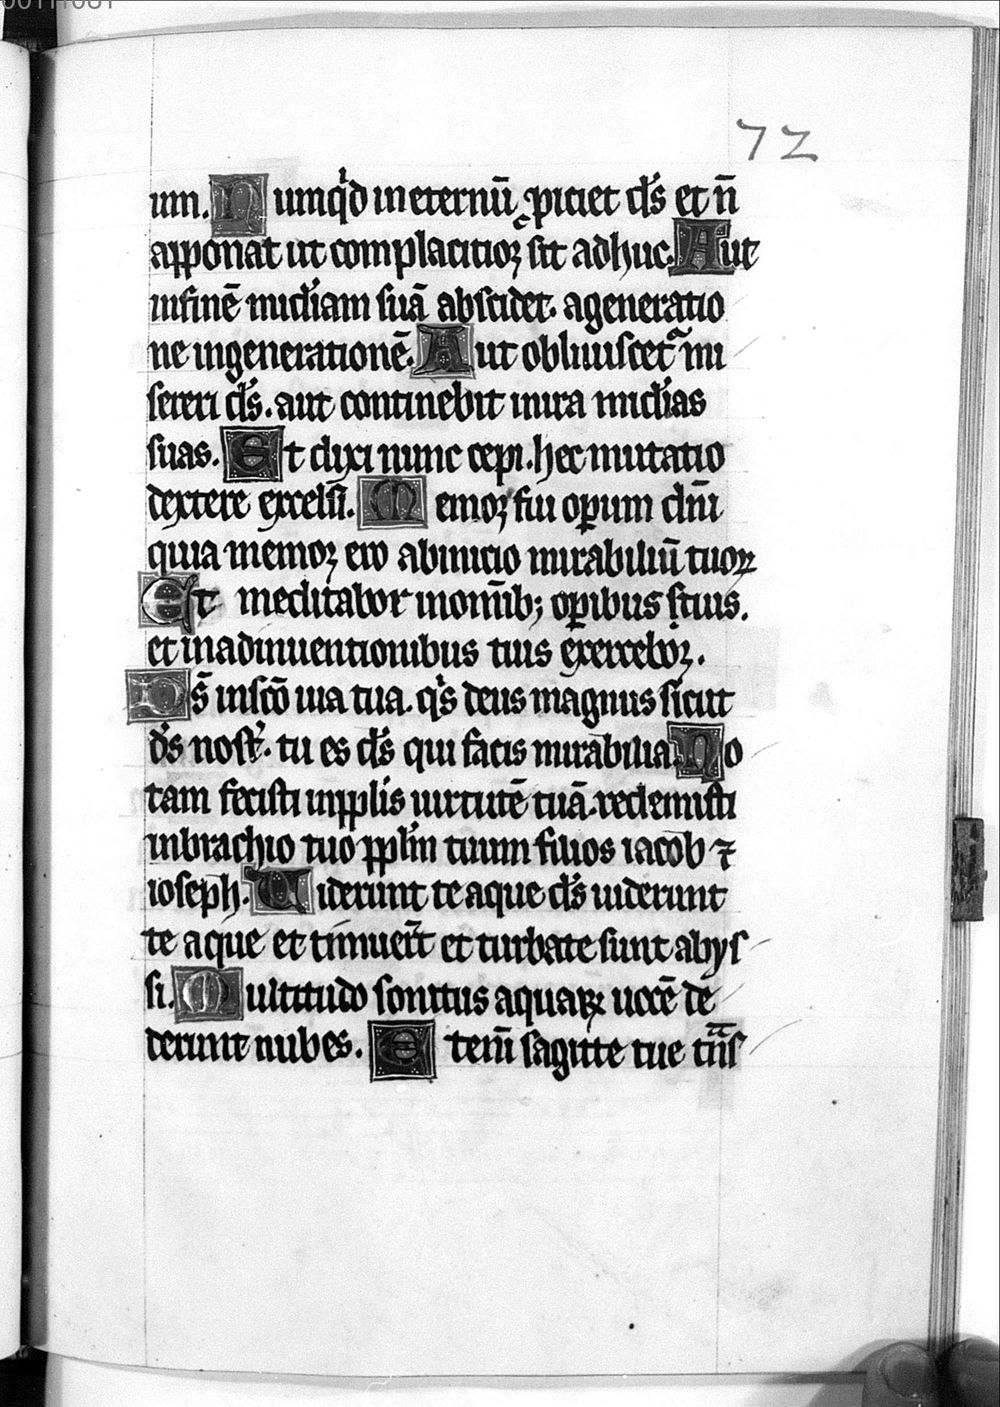 00111081
72
um. Numq̇d in eternū ꝓiciet d̄s et n̄
apponat ut complacitioꝝ sit adhuc. Aut
infinē mīcđiam suā abscidet. ageneratio
ne ingenerationē. Aut obliuiscetᷓ mi
sereri d̄s. aut continebit inira mīcđias
suas. Et dixi nunc cepi. hec mutatio
dextere excelsi. Memoꝛ fui oꝑum dn̄i
quia memoꝛ ero abinicio mirabiliū tuoꝝ
Et meditabor inom̄ib; oꝑibus tuis.
et inadinuentionibus tuis exerceboꝛ.
Ds̄ inscō uia tua. q̇s deus magnus sicut
ds̄ nost̄. tu es d̄s qui facis mirabilia. No
tam fecisti inppl̄is uirtutē tuā. redemisti
inbrachio tuo ppl̄m tuum filios iacob ⁊
ioseph. Uiderunt te aque d̄s uiderunt
te aque et timuer̄t et turbate sunt abys
si. Multitudo sonitus aquaꝝ uocē de
derunt nubes. Eteni̅ sagitte tue tn̄s